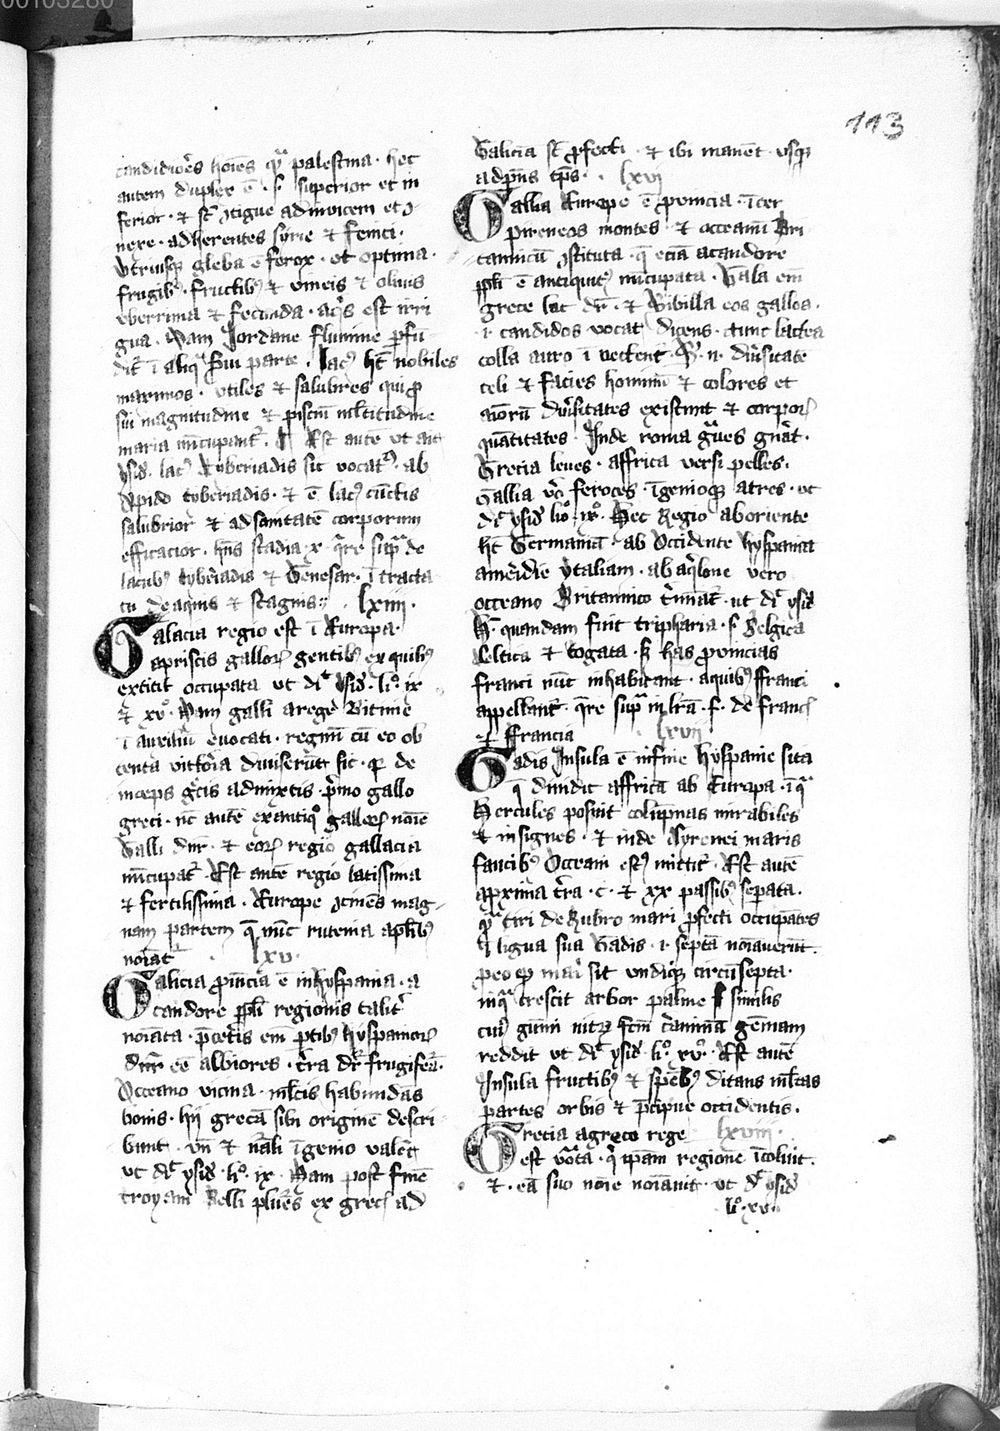 113
candidiores hoīes qᵃ palestina · hec
autem duplex ē · sͨ superior et in
ferior · ⁊ st̄ ꝯtigue adinvicem et ꝯ
nexe · adherentes sirie ⁊ fenici ·
utriusqꝫ gleba ē ferox · et optima ·
frugibꝰ · fructibꝰ ⁊ vineis ⁊ olivis
uberrima ⁊ fecunda · aqͥs est irri
gua · Nam Iordane flumine ꝑfū
dit᷑ ī aliqͣ sui parte · lacꝰ hꝫ nobiles
marinos · utiles ⁊ salubres qui ꝓ
sui magnitudine ⁊ pisciū ml̄titudine
maria nūcupant᷑ · Est autē ut ait
ysid᷑ · lacꝰ tyberiadis sic vocatꝰ · ab
opido tyberiadis · ⁊ ē lacꝰ cūctis
salubrior ⁊ ad sanitatē corporum
efficacior · hn̄s stadia · x · qͣre supͣ de
lacubꝰ tyberiadis ⁊ Genesar · ī tracta
tu de aquis ⁊ stagnis · lxiiii ·
Galacia regio est ī Europa
a priscis galloꝝ gentibꝰ ex quibꝰ
extitit occupata ut dic̄ ysid᷑ · liº · ix
⁊ xvº · Nam galli a rege Bitinie
ī auxiliū evocati · regnū cū eo ob
tenta victoria diviserūt sic · ꝙ de
inceps gͣcis admixtis · pͥmo gallo
greci · nc̄ autē ex antiqͦ galloꝝ noīe
Galli dnr̄ · ⁊ eoꝝ regio gallacia
nūcupat᷑ · Est autē regio latissima
⁊ fertilissima · Europe ꝯtinēs mag
nam partem q̄ nūc rutenia a pl̄ibꝰ
noīat᷑ · lxv ·
Galicia ꝓvincia ē in hyspania · a
candore ppl̄i regionis talit᷑
noīata · p̄ ceteris em̄ ptibꝰ hyspanicis
dnr̄ eē albiores · t̄ra dr̄ frugifera ·
Occeano vicina · ml̄tis habundās
bonis · hii grecā sibi originē descri
bunt · vn̄ ⁊ nāli īgenio valēt
ut dic̄ ysid᷑ · liº · ix · Nam post finē
troyani belli plures ex grecis ad
Galicia st̄ ꝓfecti · ⁊ ibi manēt usqꝫ
ad pn̄s tp̄s · lxvi
Gallia Europe ē ꝓvincia · īter
pireneos montes ⁊ occeanū Bri
tannicū ꝯstituta · q̄ eciā a candore
ppl̄i ē antiquitꝰ nūcupata · Gala em̄
grece lac dr̄ · ⁊ Sibilla eos gallos ·
·i· candidos vocat dicens · tunc lactea
colla auro ī nectent᷑ · diūsitate
celi ⁊ facies hominū ⁊ colores et
aīorū diūsitates existunt ⁊ corporꝫ
quātitates · Inde roma gͣves gnāt ·
Grecia leves · affrica versi pelles ·
Gallia vͦ feroces · īgenioqꝫ atres · ut
dic̄ ysid᷑ liº · ixº · Hec Regio ab oriente
hꝫ Germaniā · ab Occidente hyspania
a meridie ytaliam · ab aqͥlone vero
occeano Britannico t̄minat᷑ · ut dic̄ ysid᷑
Hec quandam fuit tripharia · sͨ Belgica
Celtica ⁊ togata · sꝫ has ꝓvincias
franci nūc inhabitant · a quibꝰ ffranci
appellant᷑ · qͣre supͣ in lrā · f · de franc
⁊ ffrancia · lxvii
Gadis Insula ē in fine hyspanie sita
q̄ dividit affricā ab Europa · ī qͣ
Hercules posuit colūpnas mirabiles
⁊ insignes · ⁊ inde Tyrenei maris
faucibꝰ Occeani estꝰ mittit᷑ · Est autē
a ꝓxima t̄ra · c · ⁊ xx passibꝰ sepata ·
qͣ tiri de Rubro mari ꝓfecti occupātes
ligua sua Gadis ·i· septā noīaverūt ·
p eo ꝙ mari sit undiqꝫ circūsepta ·
in qͣ crescit arbor palme similis
cuiꝰ gūmi vitꝝ fcm̄ cerauniā gēmam
reddit ut dic̄ ysid᷑ · liº · xvº · Est autē
Insula fructibꝰ ⁊ spēbꝰ ditans ml̄tas
partes orbis ⁊ p̄cipue occidentis ·
Grecia a greco rege lxviii ·
est vocata · qͥ ip̄am regionē īcoluit ·
⁊ · eā suo noīe noīavit · ut dic̄ ysid᷑
liº · xv ·